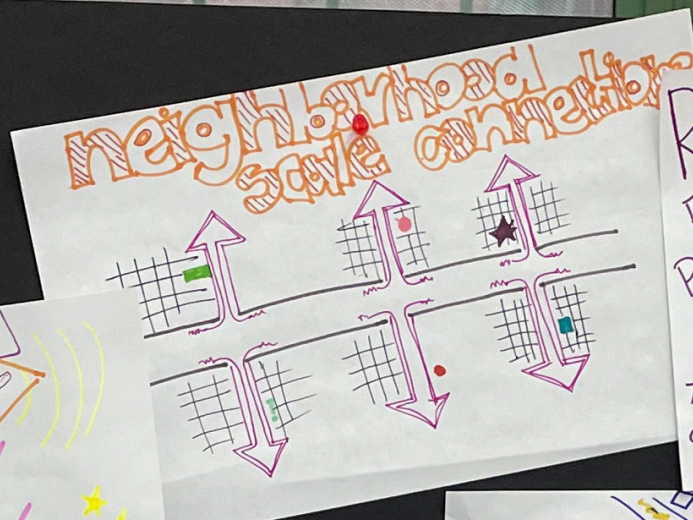 neighborhood
scale connection